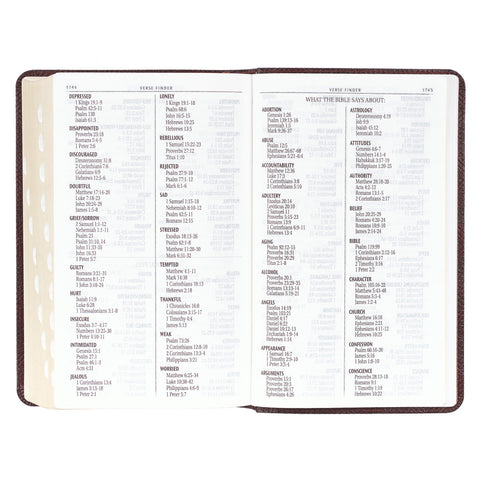 1744 VERSE FINDER
DEPRESSED
1 Kings 19:1-9
Psalm 42:5-11
Psalm 130
Isaiah 61:3
DISAPPOINTED
Romans 5:4-5
1 Peter 2:6
DISCOURAGED
Deuteronomy 31:8
2 Corinthians 7:6
Galatians 6:9
Hebrews 12:5-6
DOUBTFUL
Matthew 17:14-20
Luke 7:18-23
John 20:24-29
James 1:5-8
GRIEF/SORROW
2 Samuel 1:1-12
Nehemiah 1:1-11
Psalm 23
John 11:33-36
John 16:33
1 Peter 5:7
GUILTY
Romans 3:21-31
Romans 8:1-17
HURT
Isaiah 11:9
Luke 21:8
1 Thessalonians 3:1-8
INSECURE
Exodus 3:7-4:17
Numbers 13:25-30
1 Peter 4:10-11
INTIMIDATED
Genesis 15:1
Psalm 27:1
Psalm 46:1-3
Acts 4:31
JEALOUS
1 Corinthians 13:4
James 3:13-18
1 Peter 2:1
LONELY
1 Kings 19:1-18
Psalm 68:6
John 16:5-15
Hebrews 10:25
Hebrews 13:5
REBELLIOUS
1 Samuel 15:22-23
Proverbs 27:12
Titus 1:10
REJECTED
Psalm 27:9-14
Psalm 77:1-12
Mark 6:1-6
SAD
1 Samuel 1:3-18
Nehemiah 8:10-12
Psalm 42:5-11
STRESSED
Exodus 18:13-27
Psalm 62:1-8
Matthew 11:28-30
Mark 6:31-32
TEMPTED
Matthew 4:1-11
Mark 14:38
1 Corinthians 10:13
Hebrews 2:18
THANKFUL
1 Chronicles 16:8
Colossians 3:15-17
1 Timothy 4:4-5
James 5:13
WEAK
Psalm 73:26
2 Corinthians 12:8-10
2 Corinthians 13:3-4
Philippians 3:21
WORRIED
Matthew 6:25-34
Luke 10:38-42
Philippians 4:6-9
1 Peter 5:7
VERSE FINDER 1745
WHAT THE BIBLE SAYS ABOUT:
ABORTION
Genesis 1:26
Psalm 139:13-16
Jeremiah 1:5
Mark 9:36-37
ABUSE
Psalm 12:5
Matthew 26:67-68
Ephesians 5:23-6:4
ACCOUNTABILITY
Matthew 12:36
Luke 17:3
1 Corinthians 3:8
2 Corinthians 5:10
ADULTERY
Exodus 20:14
Leviticus 20:10
2 Samuel 11
Proverbs 5:15-23
1 Corinthians 6:9
Hebrews 13:4
AGING
Psalm 92:12-15
Proverbs 16:31
Proverbs 20:29
Titus 2:1-8
ALCOHOL
Proverbs 20:1
Proverbs 23:29-35
Romans 13:13-14
Galatians 5:19-21
ANGELS
Exodus 14:19
Psalm 103:21
Daniel 6:22
Daniel 10:12-13
Zechariah 1:9-14
Hebrews 1:14
APPEARANCE
1 Samuel 16:7
1 Timothy 2:9-10
1 Peter 3:3-4
ARGUMENTS
Proverbs 15:1
Proverbs 26:17
Ephesians 4:26
ASTROLOGY
Deuteronomy 4:19
Job 9:9
Isaiah 45:12
Jeremiah 10:2
ATTITUDES
Genesis 4:6-7
Numbers 14:1-4
Habakkuk 3:17-19
Philippians 2:5
AUTHORITY
Matthew 28:18-20
Acts 4:2-12
Romans 13:1
BELIEF
John 20:25-29
Romans 4:20-24
Romans 10:9-10
James 2:14-24
BIBLE
Psalm 119:99
1 Corinthians 2:12-16
Ephesians 6:17
2 Timothy 3:16
1 Peter 2:2
CHARACTER
Matthew 5:43-48
Romans 5:3-4
James 1:2-4
CHURCH
Matthew 16:18
Ephesians 2:21
Ephesians 4:11-12
Hebrews 10:25
CONFESSION
James 5:16
1 John 1:8-10
CONSCIENCE
Romans 9:1
1 Timothy 1:19
Hebrews 10:22